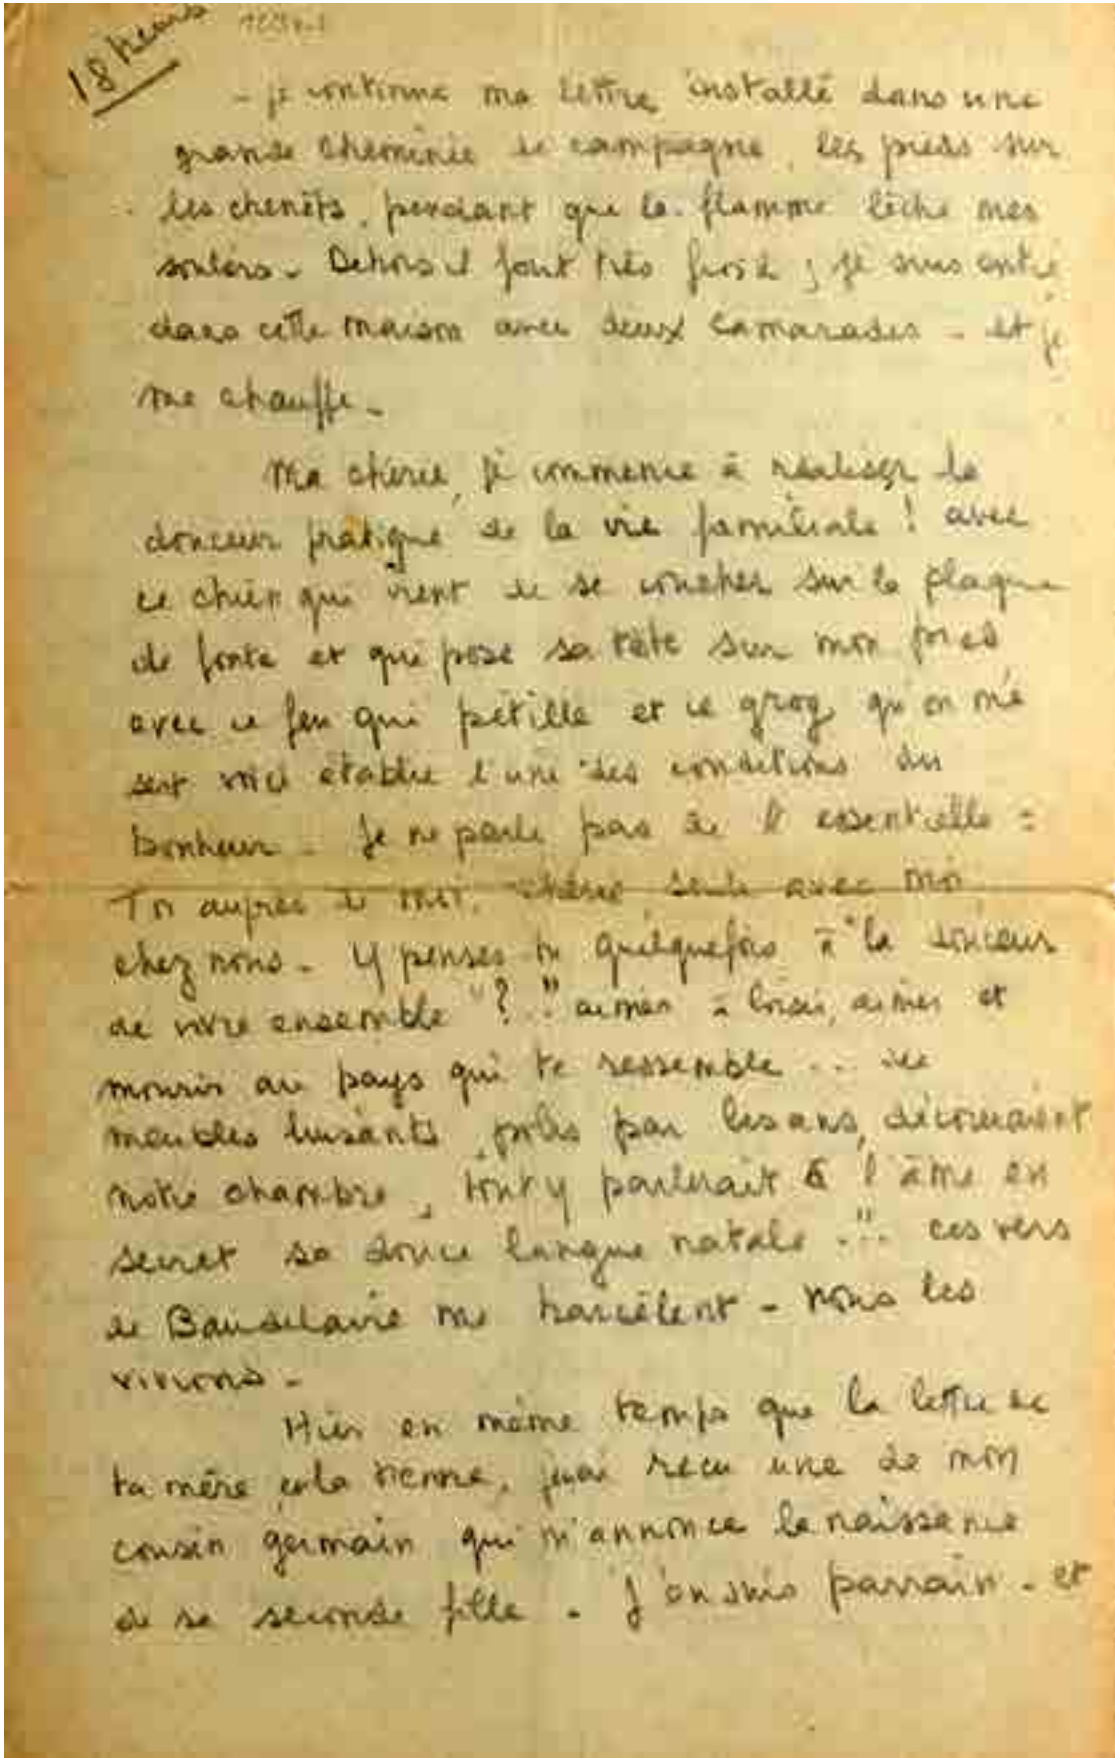 18 heures
- je continue ma lettre, installé dans une
grande cheminée de campagne, les pieds sur
les chenêts, pendant que la flamme lèche mes
souliers - Dehors il fait très froid ; je suis entré
dans cette maison avec deux camarades - et je
me chauffe -
Ma chérie, je commence à réaliser la
douceur pratique de la vie familiale ! avec
ce chien qui vient de se coucher sur la plaque
de fonte et qui pose sa tête sur mon pied
avec ce feu qui pétille et ce grog qu'on me
sert voici établie l'une des conditions du
bonheur - Je ne parle pas de l'essentielle :
Toi auprès de moi, chérie seule avec moi
chez nous - Y penses tu quelquefois à "la douceur
de vivre ensemble" ? "aimer à loisir, aimer et
mourir au pays qui te ressemble ... des
meubles luisants, polis par les ans, décoreraient
notre chambre, tout y parlerait à l'âme en
secret sa douce langue natale ..." ces vers
de Baudelaire me harcèlent - nous les
vivrons -
Hier en même temps que la lettre de
ta mère, et la tienne, j'ai reçu une de mon
cousin germain qui m'annonce la naissance
de sa seconde fille - J'en suis parrain - et